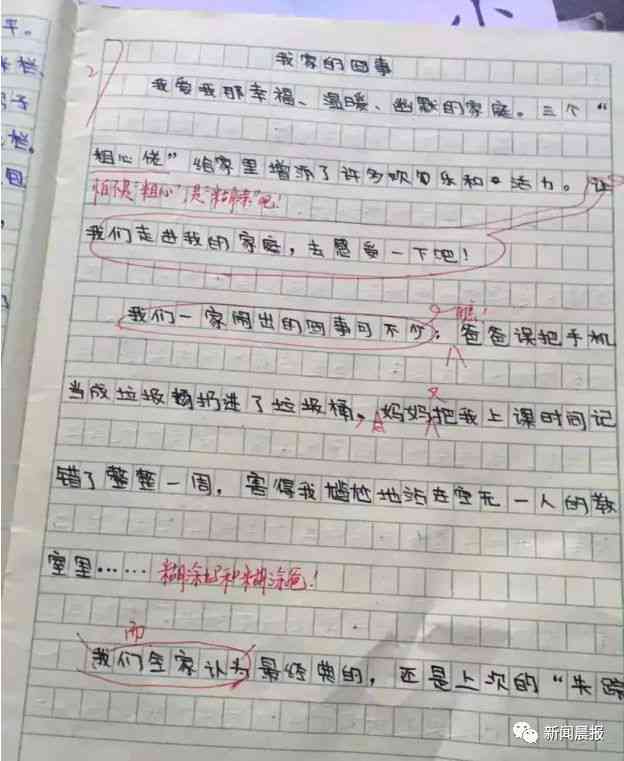 小
我家的囧事
我爱我那幸福、温暖、幽默的家庭。三个“
粗心佬”给家里增添了许多欢乐和活力。让
怕不是“粗心”,是“糊涂”吧!
我们走进我的家庭,去感受一下吧!
瞧!
我们一家闹出的囧事可不少:爸爸误把手机
当成垃圾扔进了垃圾桶,妈妈把我上课时间记
错了整整一周,害得我尴尬地站在空无一人的教
室里……糊涂妈和糊涂爸!
而
我们全家认为最经典的,还是上次的“失踪
新闻晨报